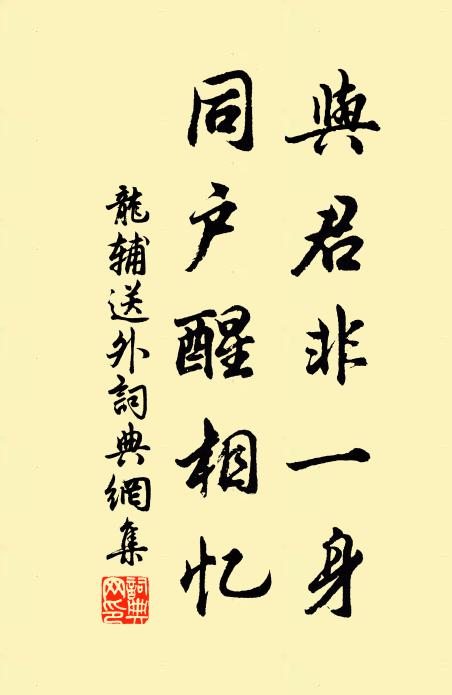 與君非一身
同户醒相忆
龍輔送外詞典網集
詞典
网印